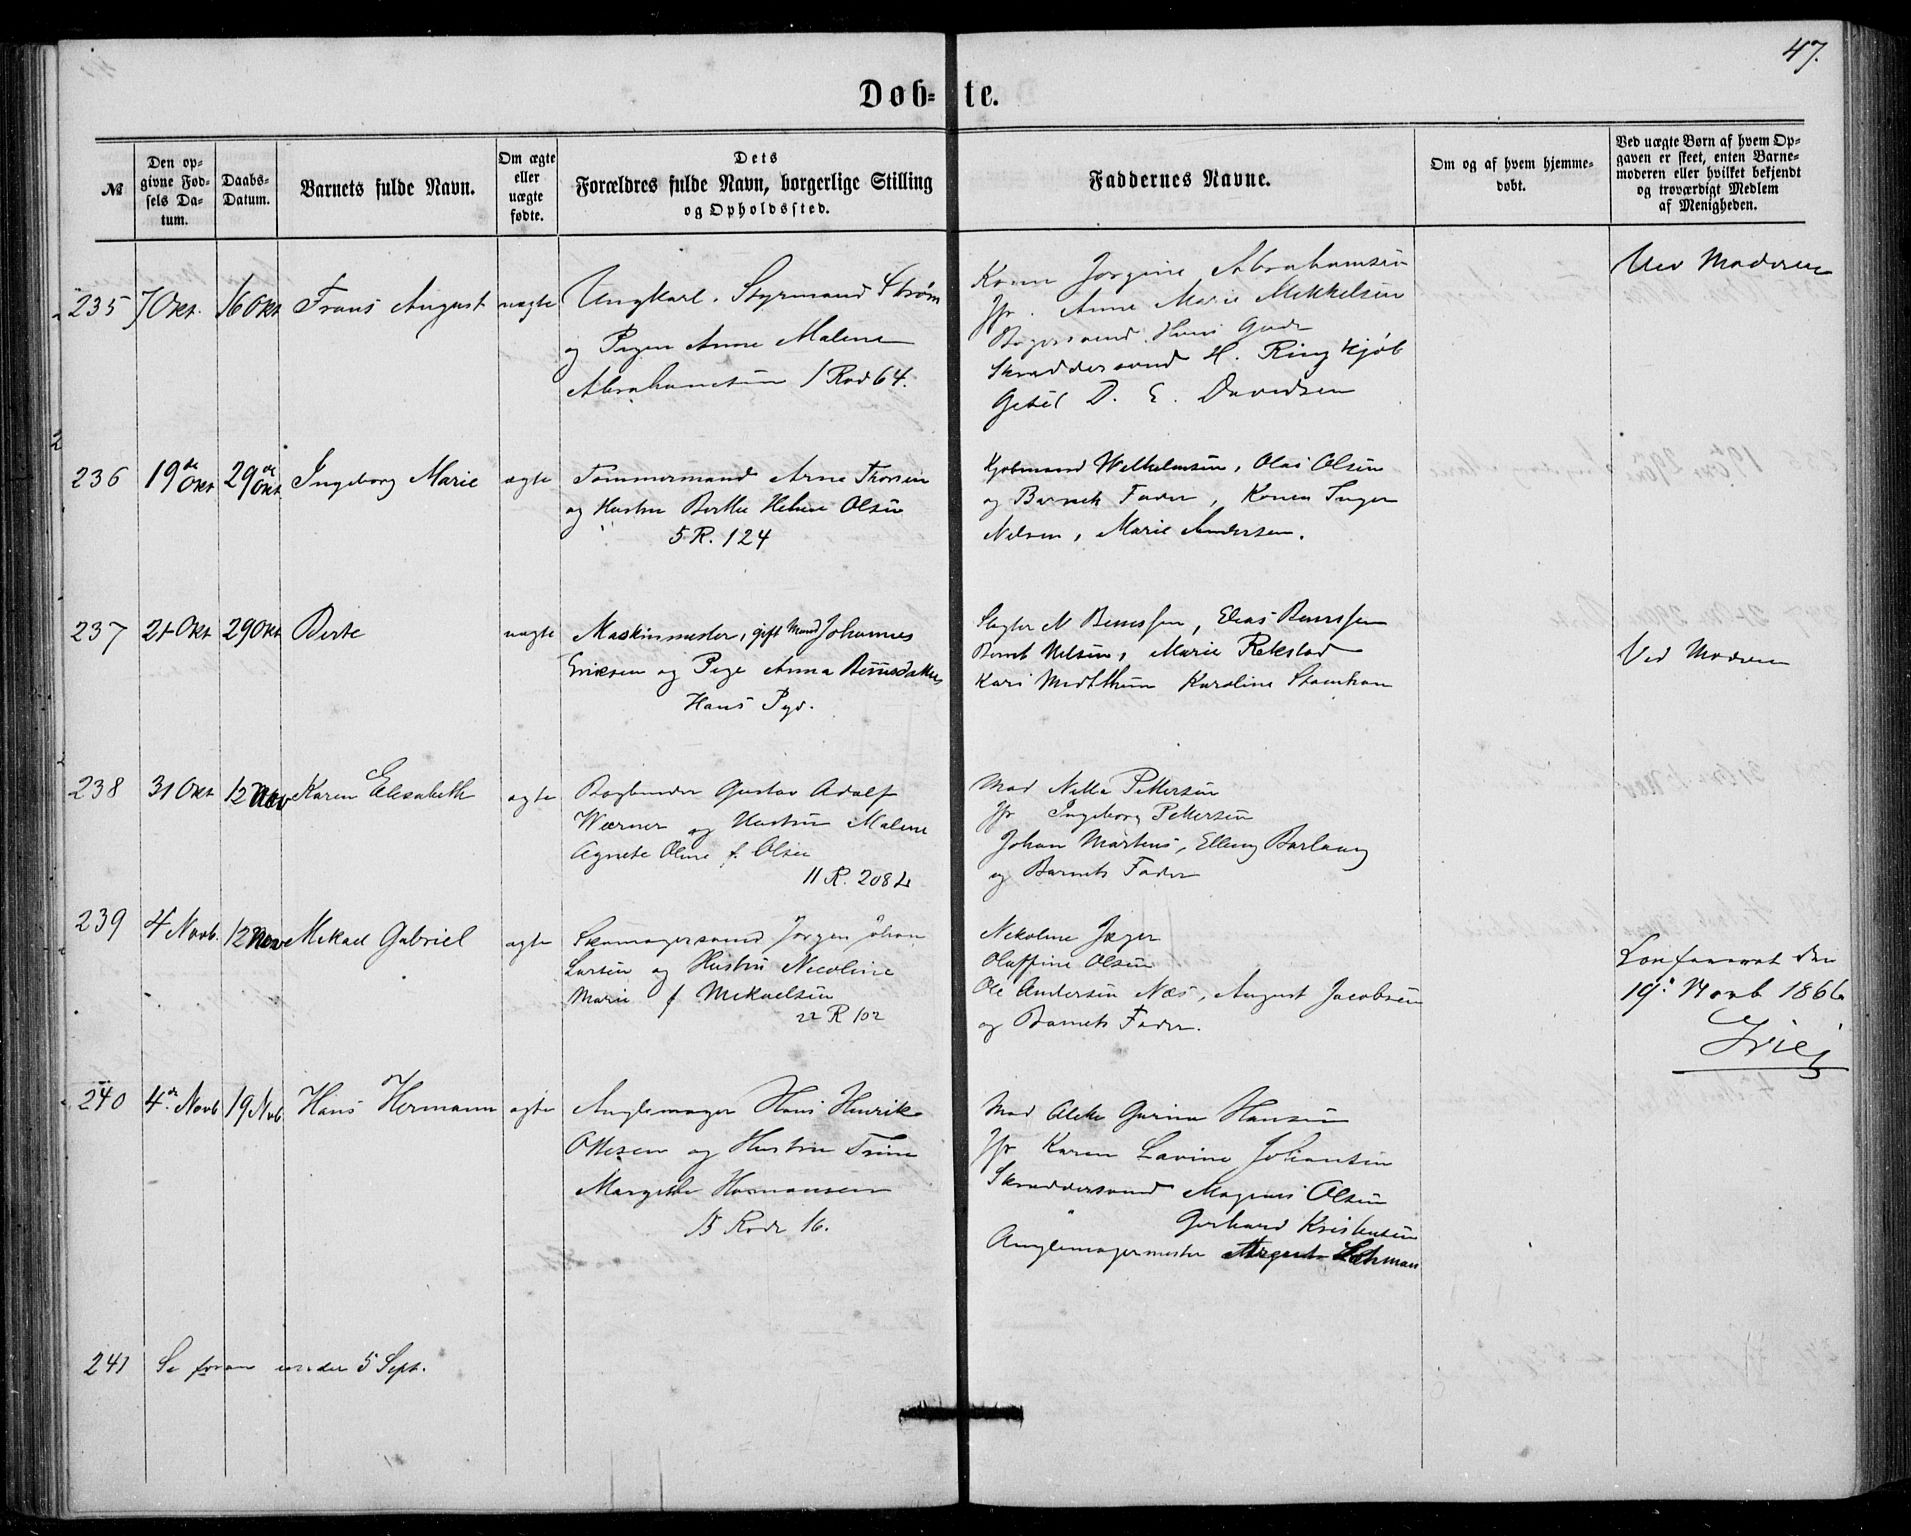 47.
Døb-te.
№
Den op-
givne Fød-
sels Da-
tum.
Daabs-
Datum.
Barnets fulde Navn.
Om ægte
eller
uægte
fødte.
Dets
Forældres fulde Navn, borgerlige Stilling
og Opholdssted.
Faddernes Navne.
Om og af hvem hjemme-
døbt.
Ved uægte Børn af hvem Op-
gaven er skeet, enten Barne-
moderen eller hvilket bekjendt
og troværdigt Medlem
af Menigheden.
235 7 Okt. 16 Okt Frans August uægte
Ungkarl. Styrmand Strøm
og Pigen Anne Malene
Abrahamsen 1 Rod 64.
Konen Jorgine Abrahamsen
Jfr. Anne Marie Mikkelsen
Bagersvend Hans
Skræddersvend H. Ringkjøb
D. E. Davidsen
Ved Moderen
236 19de Okt 29de Okt Ingeborg Marie ægte
Tømmermand Arne Thorsen
og Hustru Berthe Helene Olsen
5 R. 124
Kjøbmand Wilhelmsen, Olai Olsen
og Barnets Fader, Konen Inger
Nilsen, Marie Andersen.
237 21 Okt 29 Okt Berte uægte
Maskinmester, gift Mand Johannes
Eriksen og Pige Anna
Hans Pgd.
Slagter N Berntsen, Elias Berntsen
Bernt Nilsen, Marie Rekstad
Kari Midtthun Karoline
Ved Moderen
238 31 Okt 12 Nov Karen Elisabeth ægte
Bogbinder Gustav Adolf
Wærner og Hustru Malene
Agnete Oline f. Olsen
11 R. 208 L
Mad Nilla Pettersen
Jfr Ingeborg Pettersen
Johan Martens, Elling Barlaug
og Barnets Fader
239 4 Novb. 12 Nove Mikael Gabriel ægte
Skomagersvend Jørgen Johan
Larsen og Hustru Nicoline
Marie f Mikaelsen
22 R 102
Nikoline Jæger
Olaffine Olsen
Ole Andersen Næs, August Jacobsen
og Barnets Fader.
19. Novb 1866
240 4de Novb 19 Nvb. Hans Hermann ægte
Anglemager Hans Henrik
Ottesen og Hustru Trine
Margrethe Hermansen
15 Rode 16.
Mad Gurine Hansen
Jfr Karen Lavine Johansen
Skræddersvend Magnus Olsen
" Gerhard Kristensen
Anglemagermester August Lehman
241 Se foran under 5 Sept.